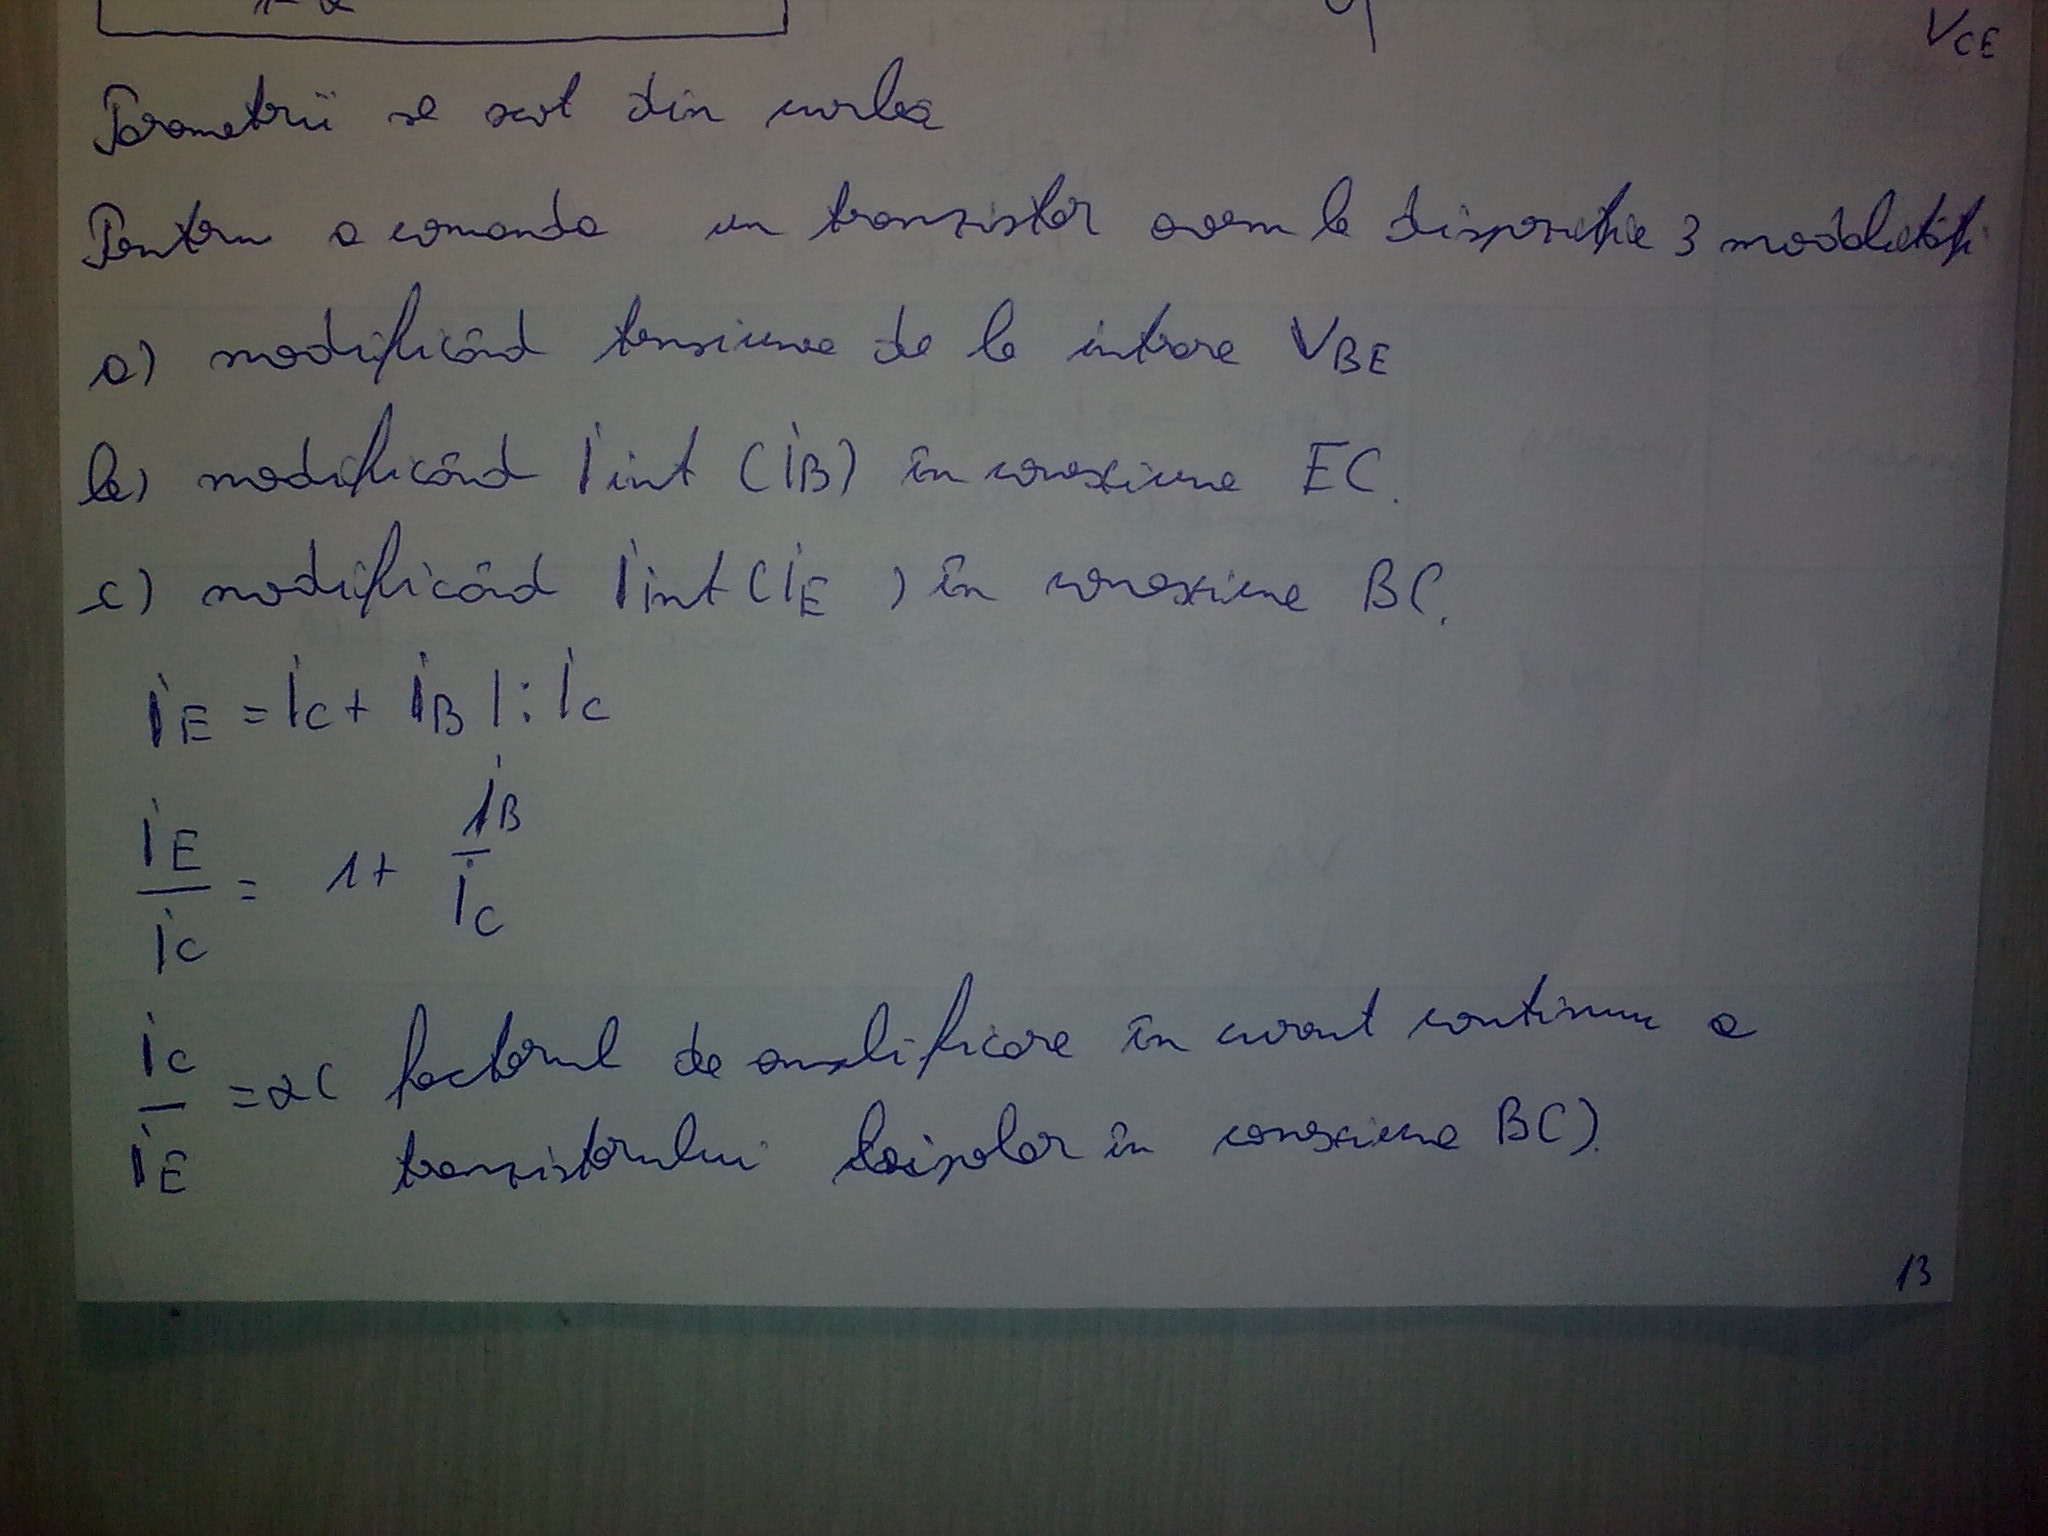 V_CE
Parametrii se scot din curba
Pentru a comanda un tranzistor avem la dispoziție 3 modalități
a) modificând tensiunea de la intrare V_BE
b) modificând i int (i_B) în conexiune EC.
c) modificând i int (i_E) în conexiune BC.
i_E = i_C + i_B |: i_C
i_E / i_C = 1 + i_B / i_C
i_C / i_E = α ( factorul de amplificare în curent continuu a
tranzistorului bipolar în conexiune BC).
13